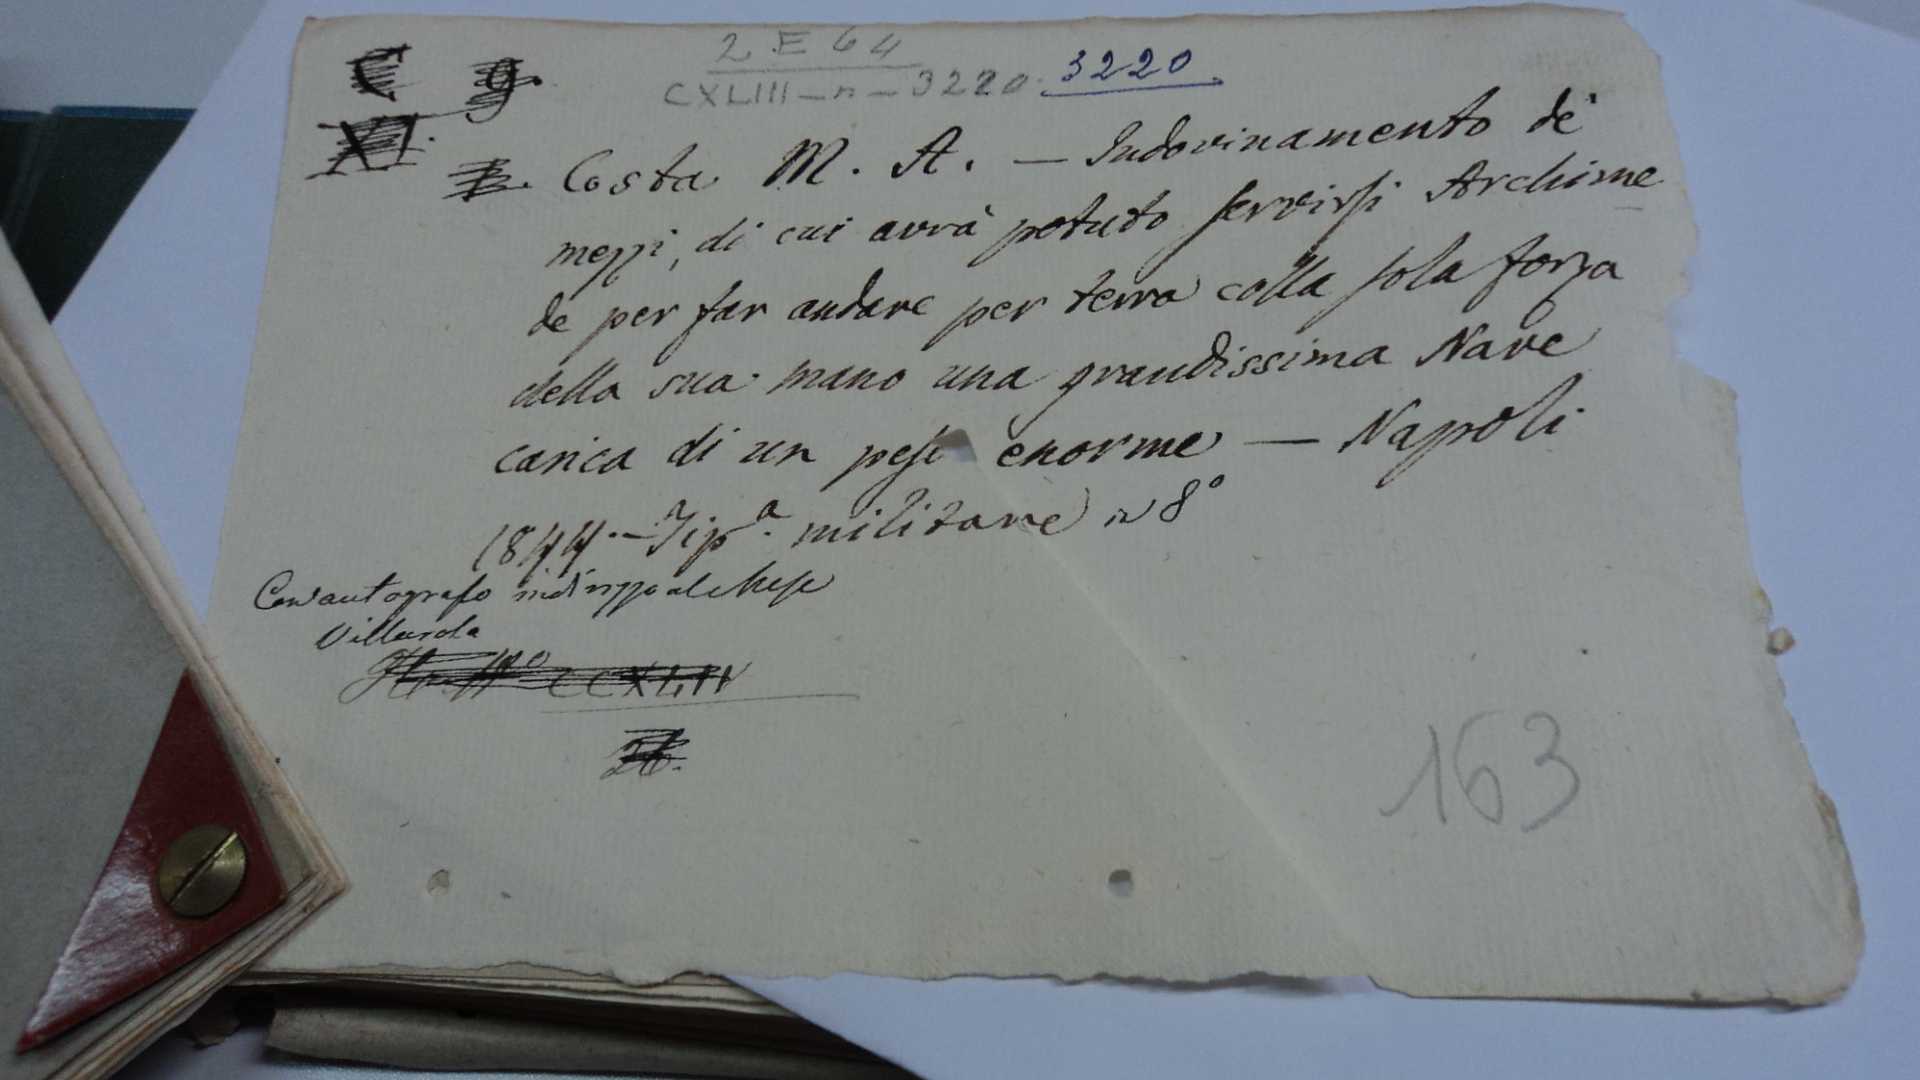 2 E 64
CXLIII - n - 3220. 3220
C g.
XI.
B. Costa M. A. — Indovinamento de'
mezzi, di cui avrà potuto servirsi Archime
de per far andare per terra colla sola forza
della sua mano una grandissima Nave
carica di un peso enorme — Napoli
1844. — Tip.a militare in 8°
Con autografo indirizzo al
Villarosa
CCXLIII
26.
163